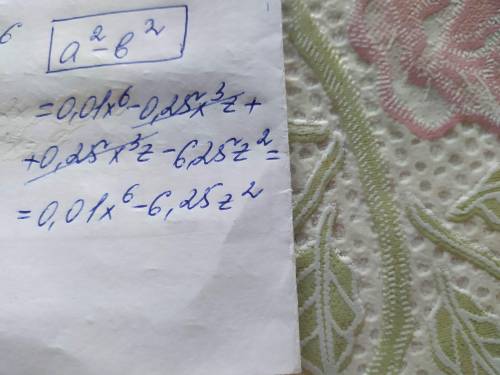 б
a² - b²
= 0,01x⁶ - 0,25x³z +
+ 0,25x³z - 6,25z² =
= 0,01x⁶ - 6,25z²